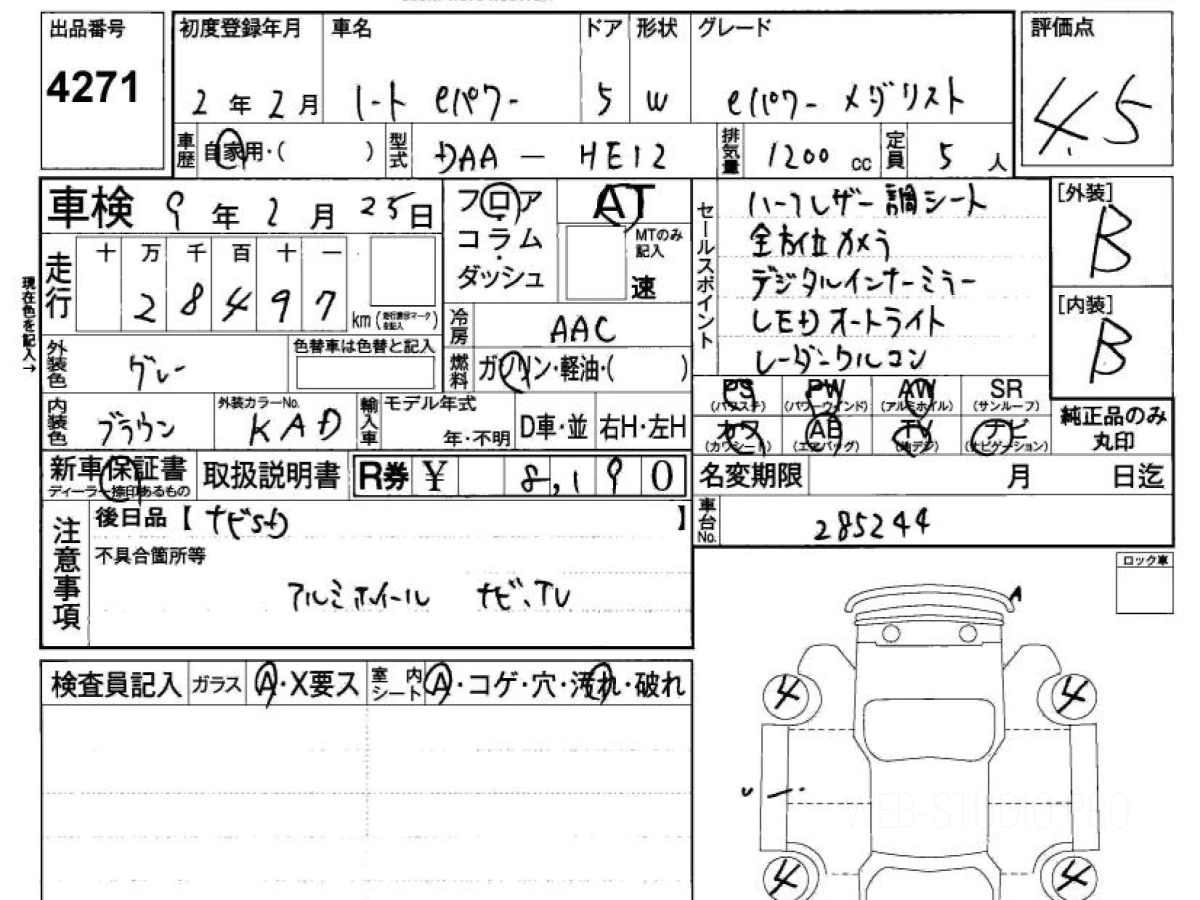 出品番号 初度登録年月 車名 ドア 形状 グレード 評価点
4271 2年2月 ノート eパワー 5 W eパワー メダリスト 4.5
車歴 自家用・( ) 型式 DAA-HE12 排気量 1200 cc 定員 5人
車検 9年2月25日 フロア AT
コラム MTのみ記入
ダッシュ 速
走行 十 万 千 百 十 一
2 8 4 9 7 km (走行表示マークを記入)
現在色を記入→
冷房 AAC
外装色 グレー 色替車は色替と記入
燃料 ガソリン・軽油・( )
内装色 ブラウン 外装カラーNo. KAD
輸入車 モデル年式 年・不明 D車・並 右H・左H
セールスポイント
ハーフレザー調シート
全方位カメラ
デジタルインナーミラー
LEDオートライト
レーダークルコン
[外装] B
[内装] B
PS (パワステ) PW (パワーウインド) AW (アルミホイル) SR (サンルーフ)
カワ (カワシート) AB (エアバッグ) TV (地デジ) ナビ (ナビゲーション)
純正品のみ丸印
新車保証書 ディーラー捺印あるもの 取扱説明書 R券 ¥ 8,190
名変期限 月 日迄
注意事項 後日品【ナビSD 】
車台No. 285244
不具合箇所等
アルミホイール ナビ、TV
ロック車
A
検査員記入 ガラス A・X要ス 室内シート A・コゲ・穴・汚れ・破れ
4 4
WEB-STUDIO.PRO
4 4